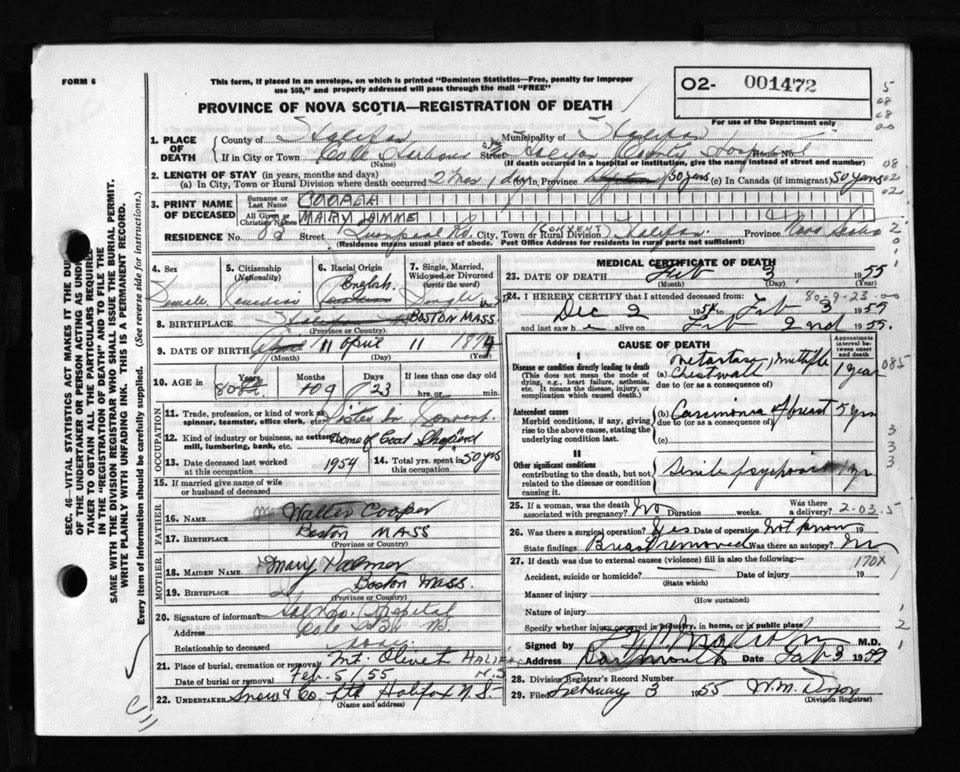 FORM 6
This form, if placed in an envelope, on which is printed "Dominion Statistics—Free, penalty for improper
use $50," and properly addressed will pass through the mail "FREE"
O2- 001472
For use of the Department only
PROVINCE OF NOVA SCOTIA—REGISTRATION OF DEATH
1. PLACE OF DEATH
County of Halifax Municipality of Halifax
If in City or Town Cole Harbour Street Halifax County Hospital House No.
(Name) (If death occurred in a hospital or institution, give the name instead of street and number)
2. LENGTH OF STAY (in years, months and days)
(a) In City, Town or Rural Division where death occurred 2 mos 1 day In Province 50 years (c) In Canada (if immigrant) 50 years
3. PRINT NAME OF DECEASED
Surname or Last Name COOPER
All Given or Christian Names MARY
RESIDENCE No. 82 Street Rd. City, Town or Rural Division CONVENT Halifax Province Nova Scotia
(Residence means usual place of abode. Post Office Address for residents in rural parts not sufficient)
4. Sex Female
5. Citizenship (Nationality) Canadian
6. Racial Origin English
7. Single, Married, Widowed or Divorced (write the word) Single
8. BIRTHPLACE BOSTON MASS
(Province or Country)
9. DATE OF BIRTH 11 April 11 1874
(Month) (Day) (Year)
10. AGE in Years 80 Months 9 Days 23 If less than one day
hrs. min.
OCCUPATION
11. Trade, profession, or kind of work as spinner, teamster, office clerk, etc. Sister in Convent
12. Kind of industry or business, as cotton mill, lumbering, bank, etc. Home of Good Shepherd
13. Date deceased last worked at this occupation 1954
14. Total yrs. spent in this occupation 50 yrs
15. If married give name of wife or husband of deceased
FATHER
16. NAME Walter Cooper
17. BIRTHPLACE Boston MASS
(Province or Country)
MOTHER
18. MAIDEN NAME Mary Palmer
19. BIRTHPLACE Boston Mass.
(Province or Country)
20. Signature of informant Hal. Co. Hospital
Address Cole N.S.
Relationship to deceased
21. Place of burial, cremation or removal Mt. Olivet HALIFAX N.S.
Date of burial or removal Feb. 5/55
22. UNDERTAKER Snow & Co. Ltd Halifax N.S.
(Name and address)
MEDICAL CERTIFICATE OF DEATH
23. DATE OF DEATH Feb 3 1955
(Month) (Day)
80-9-23
24. I HEREBY CERTIFY that I attended deceased from:
Dec 2 1954 to Feb 3 1955
and last saw her alive on Feb 2nd 1955.
CAUSE OF DEATH
Approximate interval between onset and death
I
Disease or condition directly leading to death
(This does not mean the mode of dying, e.g., heart failure, asthenia, etc. It means the disease, injury, or complication which caused death.)
(a) multiple Chest wall 1 year
due to (or as a consequence of)
Antecedent causes
Morbid conditions, if any, giving rise to the above cause, stating the underlying condition last.
(b) Carcinoma of breast 5 yrs
due to (or as a consequence of)
(c)
II
Other significant conditions
contributing to the death, but not related to the disease or condition causing it.
Senile psychosis 1 yr
25. If a woman, was the death associated with pregnancy? No Duration weeks. Was there a delivery? 2-03.5
26. Was there a surgical operation? Yes Date of operation Not known 19
State findings Breast removed Was there an autopsy? No
27. If death was due to external causes (violence) fill in also the following: 170X
Accident, suicide or homicide? Date of injury 19
(State which)
Manner of injury
(How sustained)
Nature of injury
Specify whether injury occurred in industry, in home, or in public place
Signed by M.D.
Address Dartmouth Date Feb 3 1955
28. Division Registrar's Record Number
29. Filed February 3 1955 W.M.
(Division Registrar)
SEC. 46—VITAL STATISTICS ACT MAKES IT THE DUTY
OF THE UNDERTAKER OR PERSON ACTING AS UNDER-
TAKER TO OBTAIN ALL THE PARTICULARS REQUIRED
IN THE "REGISTRATION OF DEATH" AND TO FILE THE
SAME WITH THE DIVISION REGISTRAR WHO SHALL ISSUE THE BURIAL PERMIT.
WRITE PLAINLY WITH UNFADING INK. THIS IS A PERMANENT RECORD.
Every item of information should be carefully supplied. (See reverse side for instructions.)